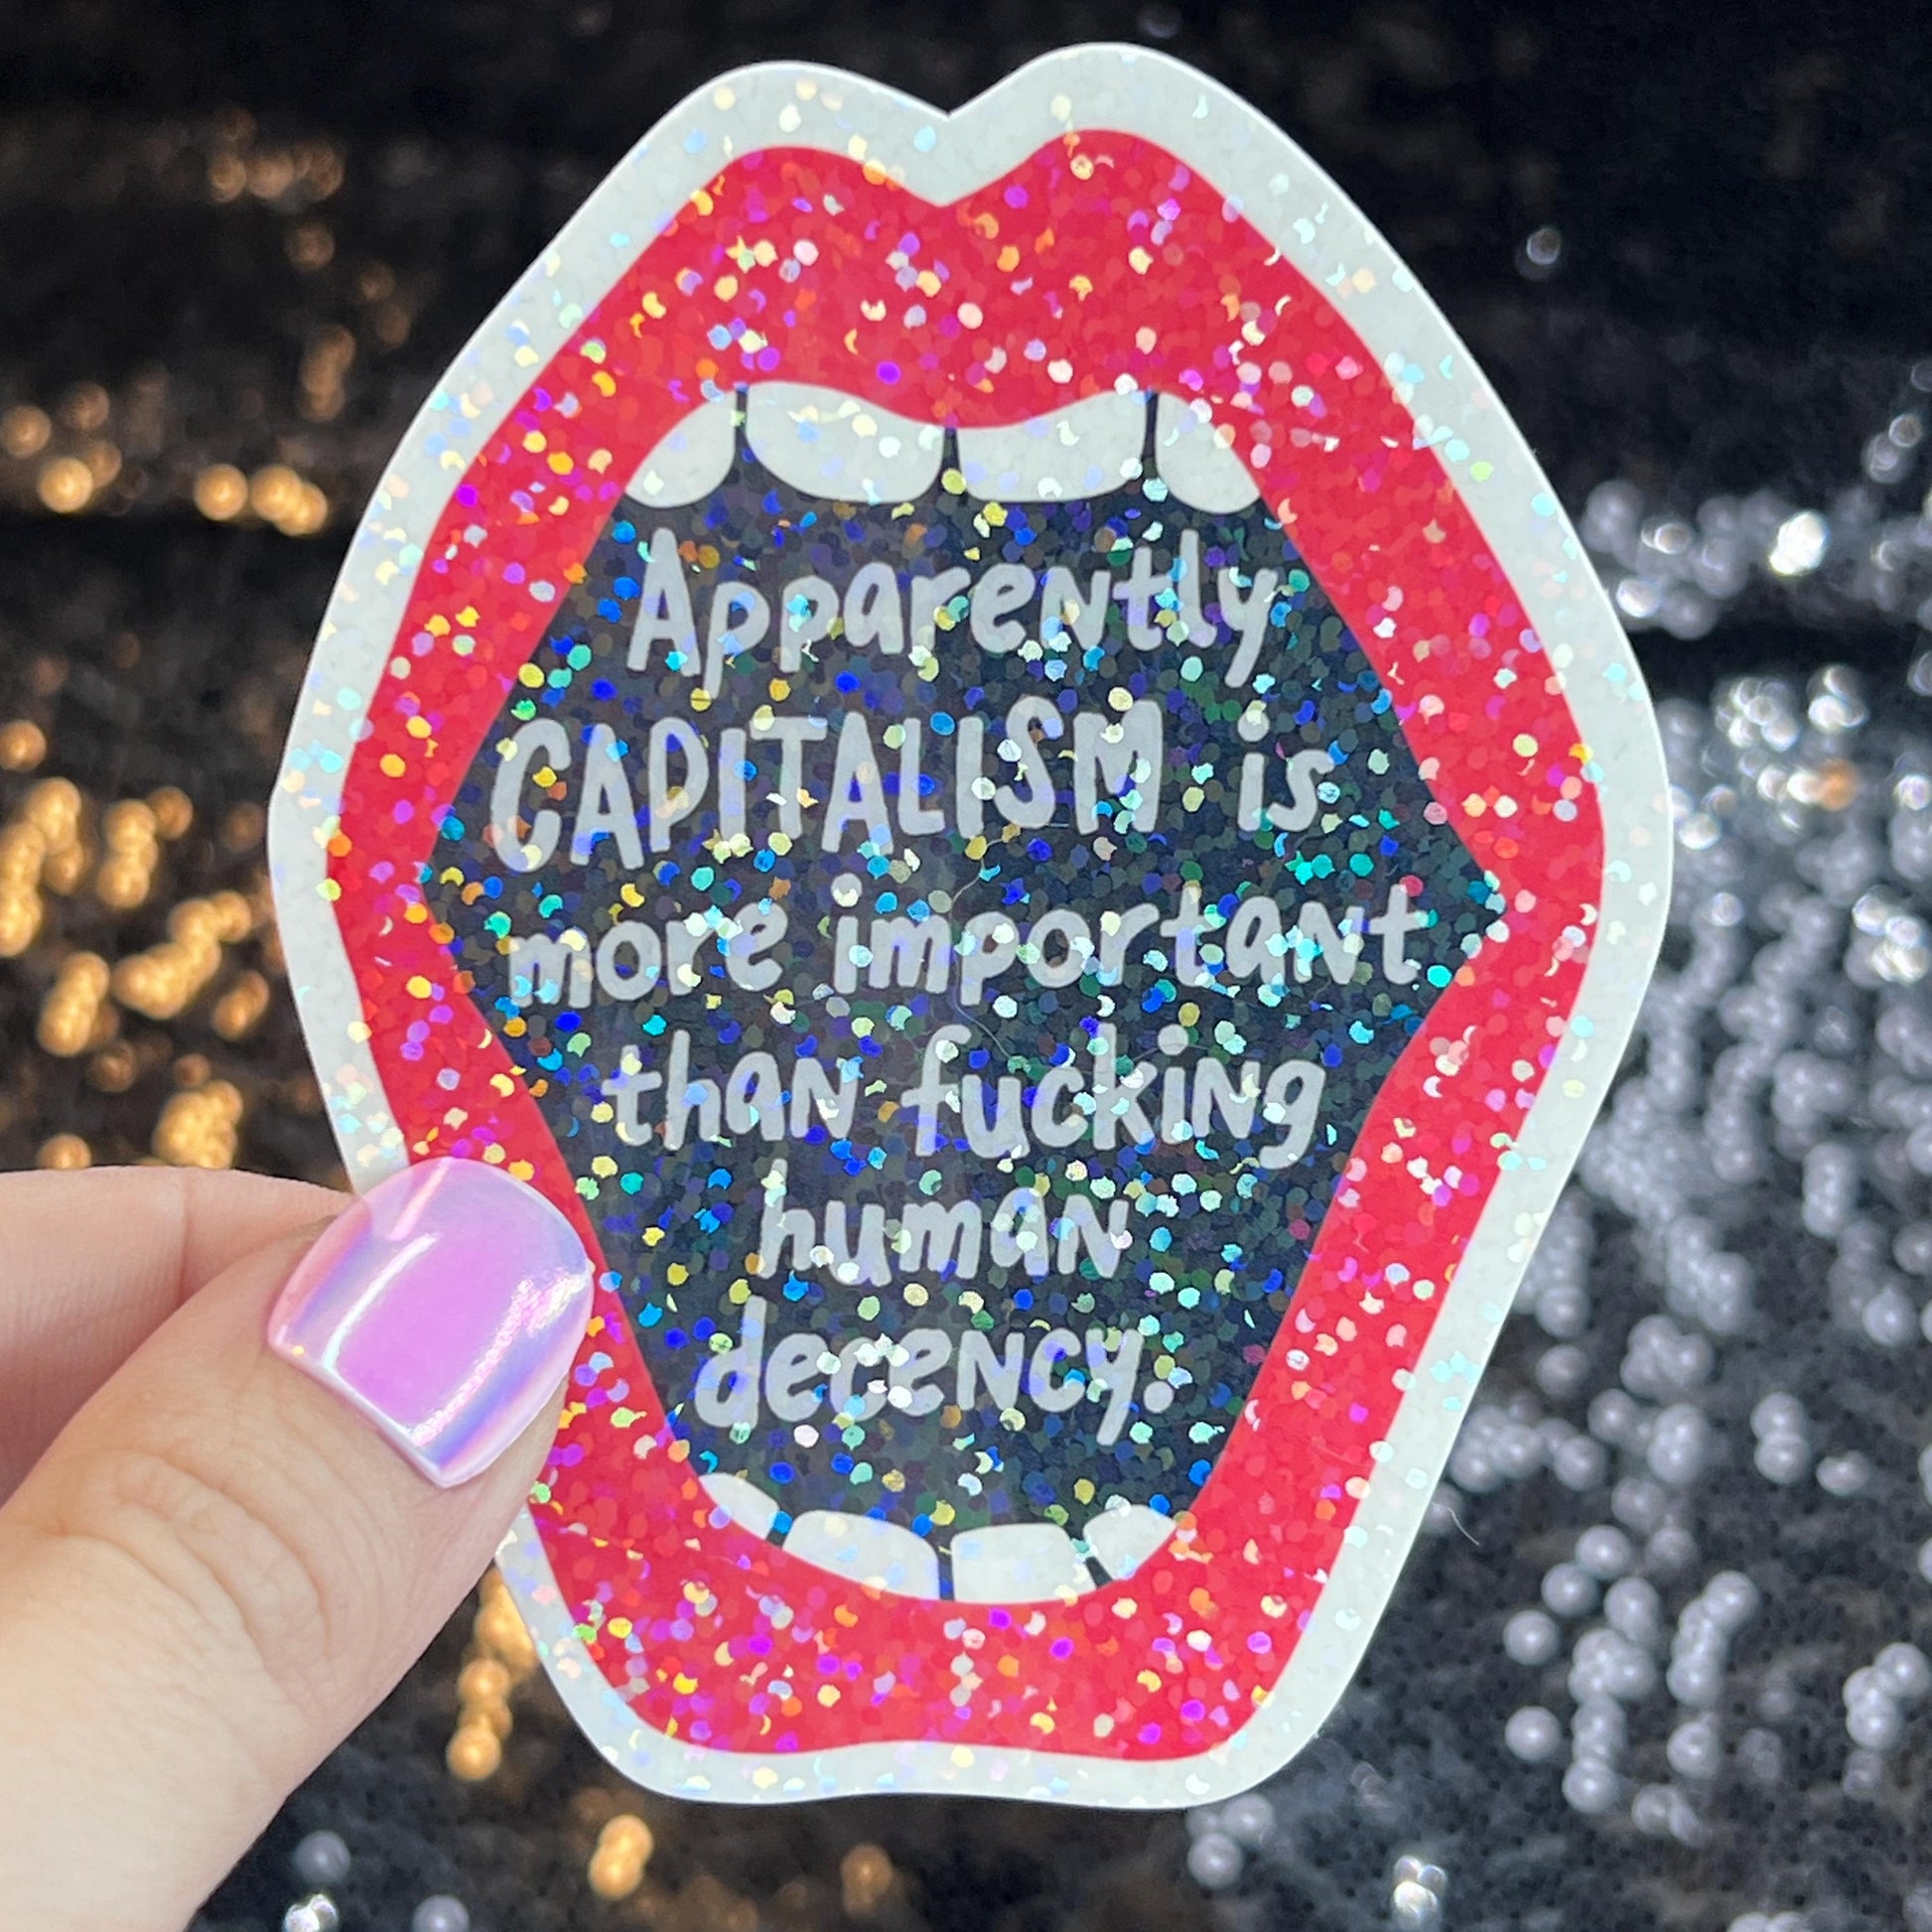 Apparently
CAPITALISM is
more important
than fucking
human
decency.